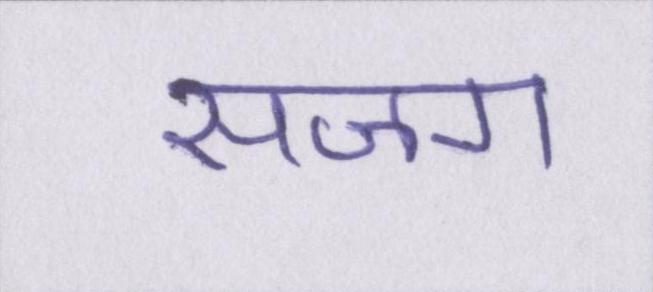 सजग